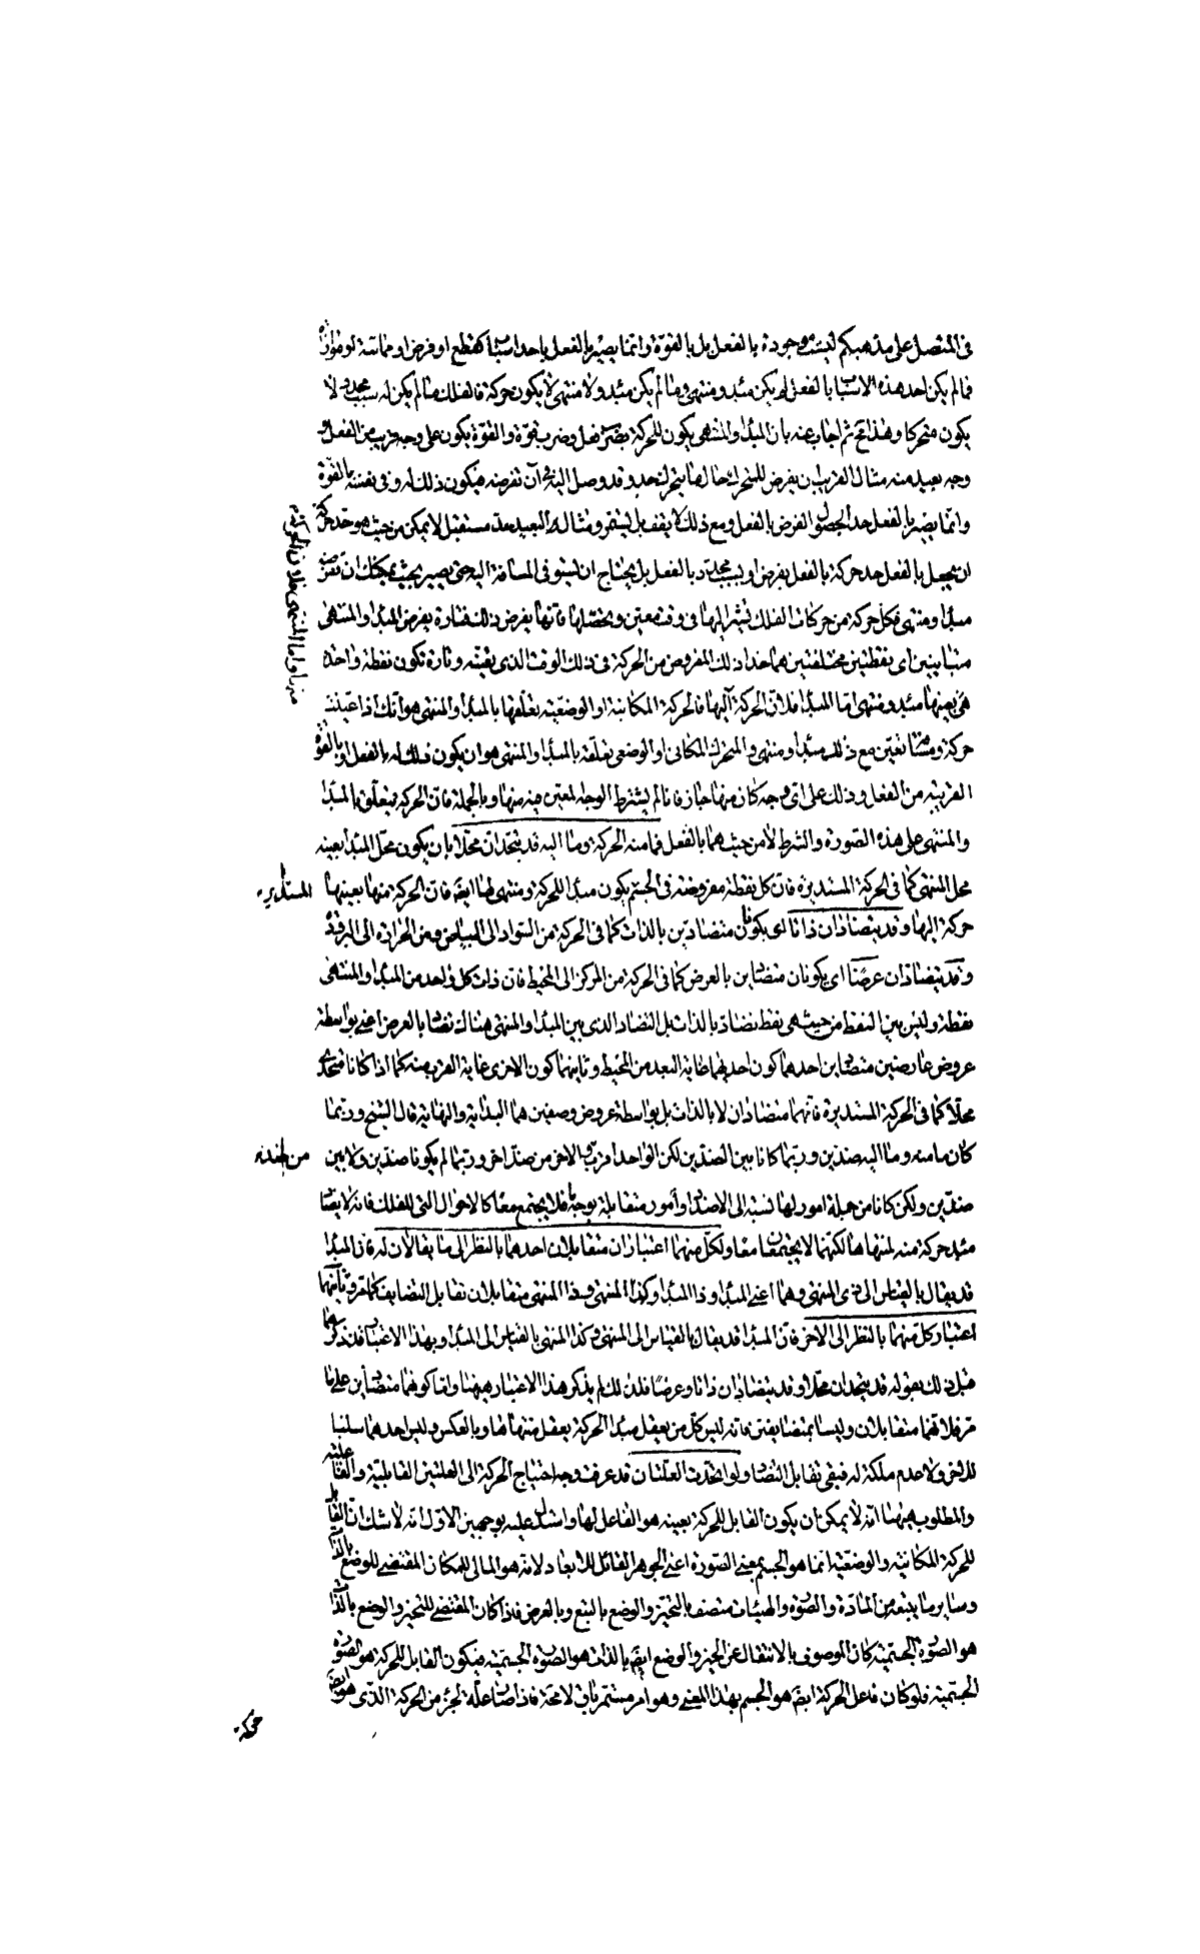 فى المتصل على مذهبكم ليست موجودة بالفعل بل بالقوة وانما يصير بالفعل باحد اسباب كقطع او فرض او مماسة او موازاة
فما لم يكن احد هذه الاسباب بالفعل لم يكن مبدء ومنتهى وما لم يكن مبدء ولا منتهى لا يكون حركة فالفلك ما لم يكن له سبب محدد لا
يكون متحركا وهذا مح ثم اجاب عنه بان المبدا والمنتهى يكون للحركة بضرب فعل وضرب قوة والقوة يكون على وجه قريب من الفعل و
وجه بعيد منه مثال القريب ان يفرض للمتحرك حال ما يتحرك حد وقد وصل اليه فى آن تفرضه فيكون ذلك له وفى نفسه بالقوة
وانما يصير بالفعل حد الحصول الفرض بالفعل ومع ذلك لا يقف بل يستمر ومثاله البعيد حد مستقبل لا يمكن من حيث هو حد حركة
ان يجعل بالفعل حد حركة بالفعل بفرض او بسبب محدد بالفعل بل يحتاج ان يستوفى المسافة اليه حتى يصير بحيث يمكنك ان تفرضه
مبدا ومنتهى فكل حركة من حركات الفلك تشير اليها فى وقت معين ويحصلها فانها يفرض ذلك فتارة يفرض المبدا والمنتهى
متباينين اى بنقطتين مختلفتين هما حدا ذلك المفروض من الحركة فى ذلك الوقت الذى يعينه وتارة تكون نقطة واحدة
هى بعينها مبدء ومنتهى اما المبدا فلان الحركة
اليها فالحركة المكانية او الوضعية تعلقها بالمبدا والمنتهى هو انك اذا عينت
حركة ومسافة تعين مع ذلك مبدا ومنتهى والمتحرك المكانى او الوضعى تعلقه بالمبدا والمنتهى هو ان يكون ذلك له بالفعل او بالقوة
القريبة من الفعل وذلك على اى وجه كان منها جاز فانا لم يشترط الوجه المعين فيه منها وبالجملة فان الحركة يتعلق بالمبدا
والمنتهى على هذه الصورة والشرط لا من حيث هما بالفعل فما منه الحركة وما اليه قد يتحدان محلا بان يكون محل المبدا بعينه
محل المنتهى كما فى الحركة المستديرة فان كل نقطة مفروضة فى الجسم يكون مبدا للحركة ومنتهى لها ايضا فان الحركة منها بعينها
المستدير
حركة اليها وقد يتضادان ذاتا اى يكونان متضادين بالذات كما فى الحركة من السواد الى البياض ومن الحرارة الى البرودة
وقد يتضادان عرضا اى يكونان متضادين بالعرض كما فى الحركة من المركز الى المحيط فان ذات كل واحد من المبدا والمنتهى
نقطة وليس بين النقط من حيث هى نقط تضاد بالذات بل التضاد الذى بين المبدا والمنتهى هناك تضاد بالعرض اعنى بواسطة
عروض عارضين متضادين احدهما كون احديهما غاية البعد من المحيط وثانيهما كون الاخرى غاية القرب منه كما اذا كانا متحدين
محلا كما فى الحركة المستديرة فانهما متضادان لا بالذات بل بواسطة عروض وصفين هما البداية والنهاية قال الشيخ وربما
كان ما منه وما اليه ضدين وربما كانا بين الضدين لكن الواحد اقرب والاخر من ضد اخر وربما لم يكونا ضدين ولا بين
ضدين ولكن كانا من جملة امور لها نسبة الى الاضداد وامور متقابلة بوجه ما فلا يجتمع معا كالاحوال التى للفلك فانه لا يضاد
مبدء حركة منه لمنتهاها لكنهما لا يجتمعان معا ولكل منهما اعتباران متقابلان احدهما بالنظر الى ما يقالان له فان المبدا
قد يقال بالقياس الى ذى المنتهى وهما اعنى المبدا وذا المبدا وكذا المنتهى وذا المنتهى متقابلان تقابل التضايف كما مر وثانيهما
اعتبار كل منهما بالنظر الى الاخر فان المبدا قد يقال بالقياس الى المنتهى وكذا المنتهى بالقياس الى المبدا وبهذا الاعتبار قد ذكرهما
قبل ذلك بقوله قد يتحدان محلا وقد يتضادان ذاتا وعرضا فلذلك لم يذكر هذا الاعتبار هيهنا واما كونهما متضادين على ما
مر فلانهما متقابلان وليسا بمتضايفين فانه ليس كل من يعقل مبدا الحركة يعقل منتهاها وبالعكس وليس احدهما سلبا
للاخر ولا عدم ملكة له فبقى تقابل التضاد ولو اتحدت العلتان قد عرفت وجه احتياج الحركة الى العلتين القابلية والفاعلية
والمطلوب هيهنا انه لا يمكن ان يكون القابل للحركة بعينه هو الفاعل لها واستدل عليه بوجهين الاول انه لا شك ان القابل
للحركة المكانية والوضعية انما هو الجسم بمعنى الصورة اعنى الجوهر القابل للابعاد لانه هو المالى للمكان المقتضى للوضع بالذات
وساير ما يتبعه من المادة والصورة والهيئات متصف بالتحيز والوضع بالتبع وبالعرض فاذا كان المقتضى للتحيز والوضع بالذات
هو الصورة الجسمية كان الموصوف بالانتقال عن الحيز والوضع ايضا بالذات هو الصورة الجسمية فيكون القابل للحركة هو الصورة
الجسمية فلو كان فاعل الحركة ايضا هو الجسم بهذا المعنى وهو امر مستمر باق لا محة فاذا صار علة لجزء من الحركة الذى هو ايضا
حركة